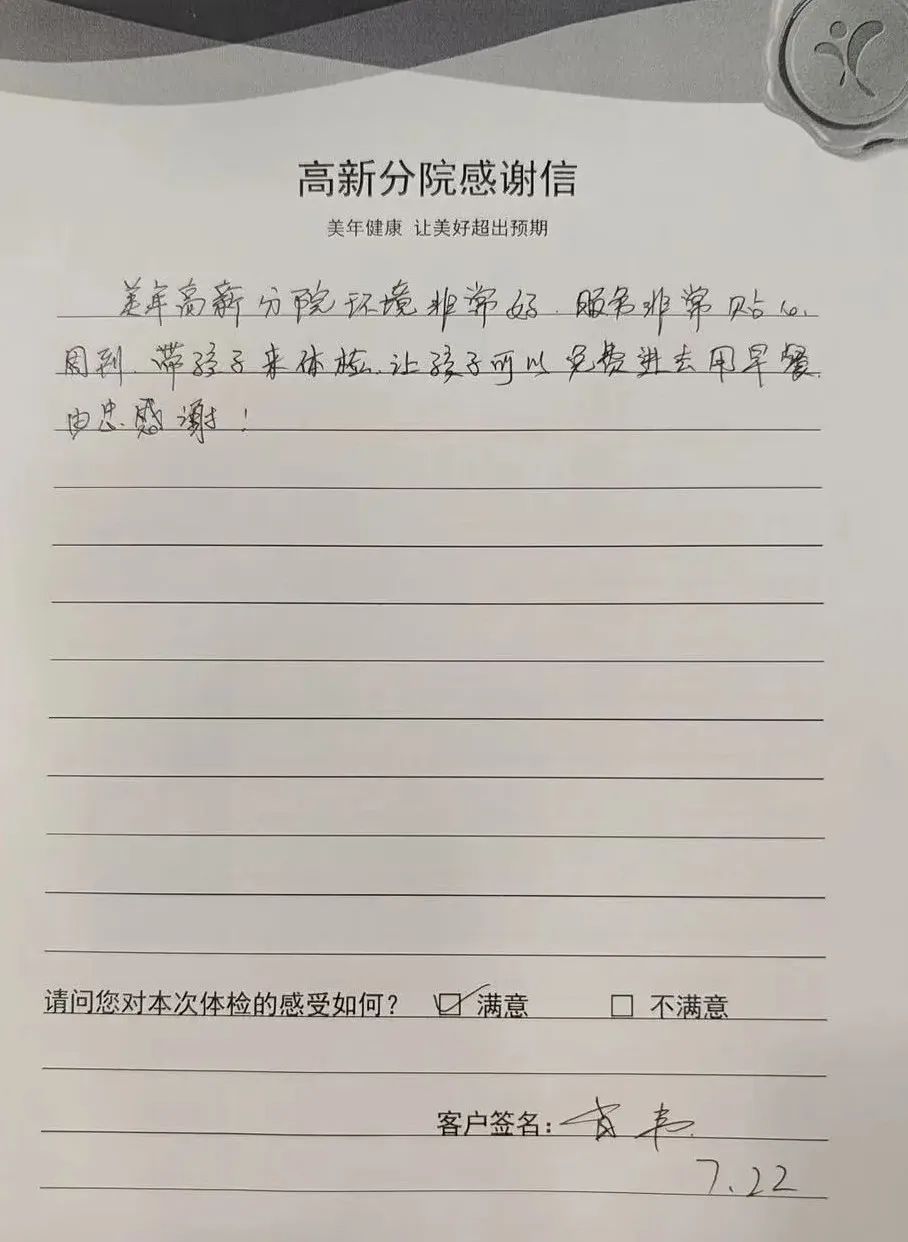 高新分院感谢信
美年健康 让美好超出预期
美年高新分院环境非常好.服务非常贴心.
周到.带孩子来体检.让孩子可以免费进去用早餐.
由忠感谢!
请问您对本次体检的感受如何? ☑ 满意 □ 不满意
客户签名:
7.22